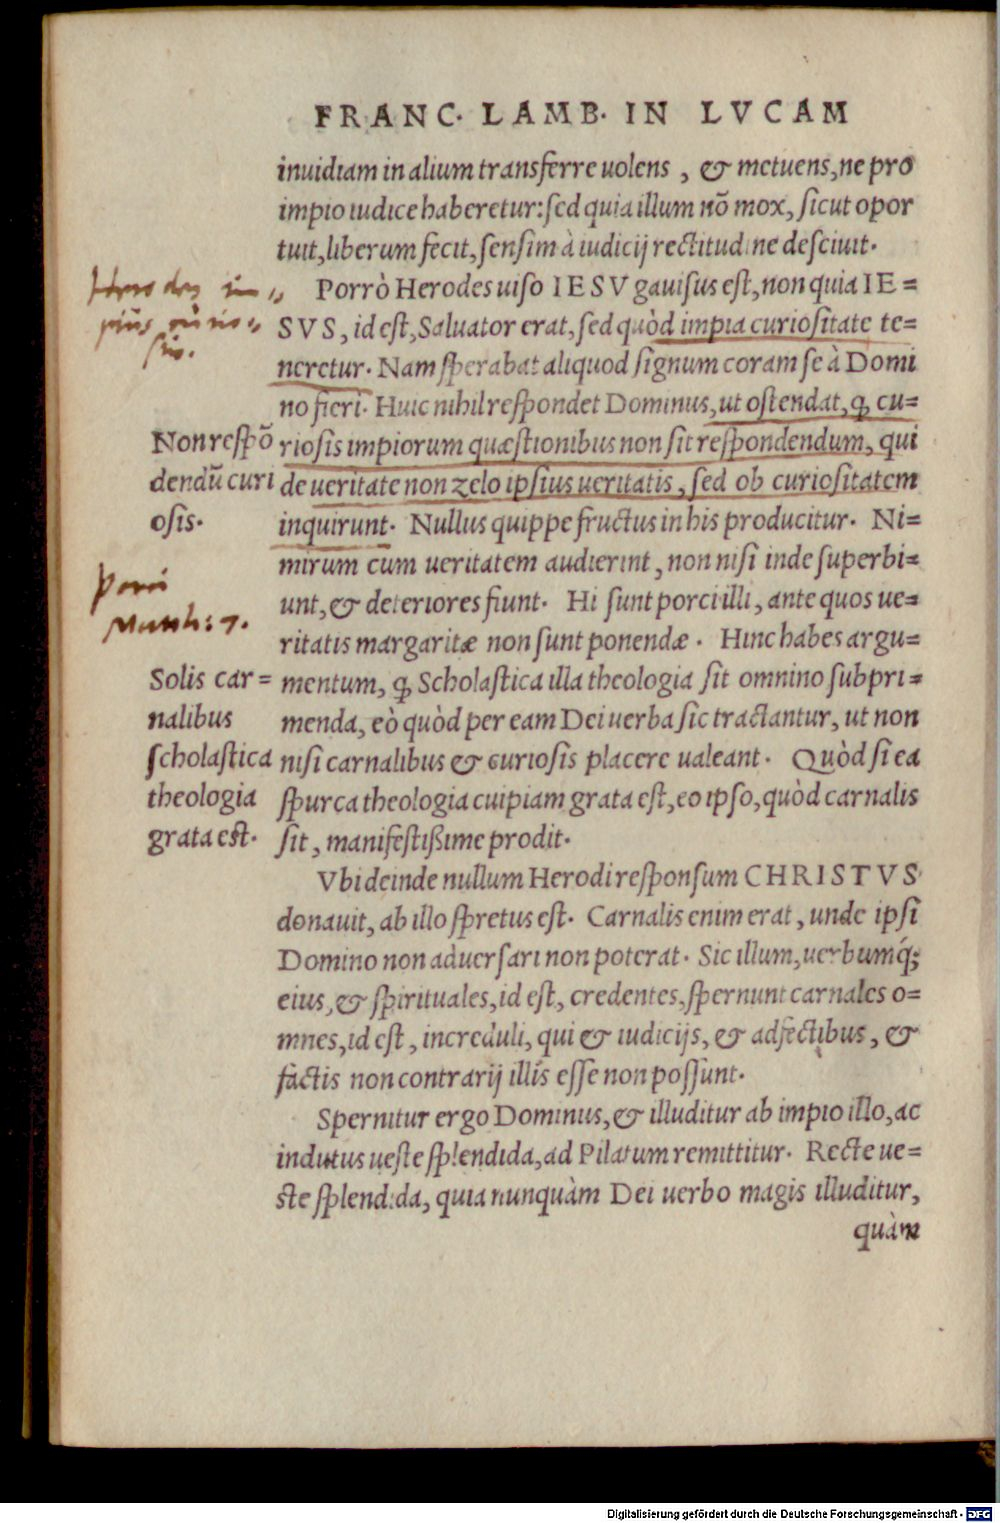 FRANC. LAMB. IN LVCAM
inuidiam in alium transferre uolens, & metuens, ne pro
impio iudice haberetur: sed quia illum nō mox, sicut opor
tuit, liberum fecit, sensim à iudicij rectitudine desciuit.
Porrò Herodes uiso IESV gauisus est, non quia IE=
SVS, id est, Saluator erat, sed quòd impia curiositate te=
neretur. Nam sperabat aliquod signum coram se à Domi
no fieri. Huic nihil respondet Dominus, ut ostendat, ꝙ cu=
riosis impiorum quæstionibus non sit respondendum, qui
de ueritate non zelo ipsius ueritatis, sed ob curiositatem
inquirunt. Nullus quippe fructus in his producitur. Ni=
mirum cum ueritatem audierint, non nisi inde superbi=
unt, & deteriores fiunt. Hi sunt porci illi, ante quos ue=
ritatis margaritæ non sunt ponendæ. Hinc habes argu=
mentum, ꝙ Scholastica illa theologia sit omnino subpri=
menda, eò quòd per eam Dei uerba sic tractantur, ut non
nisi carnalibus & curiosis placere ualeant. Quòd si ea
spurca theologia cuipiam grata est, eo ipso, quòd carnalis
sit, manifestißime prodit.
Vbi deinde nullum Herodi responsum CHRISTVS
donauit, ab illo spretus est. Carnalis enim erat, unde ipsi
Domino non aduersari non poterat. Sic illum, uerbumq́;
eius, & spirituales, id est, credentes, spernunt carnales o=
mnes, id est, increduli, qui & iudicijs, & adfectibus, &
factis non contrarij illis esse non possunt.
Spernitur ergo Dominus, & illuditur ab impio illo, ac
indutus ueste splendida, ad Pilatum remittitur. Recte ue=
ste splendida, quia nunquàm Dei uerbo magis illuditur,
quàm
Herodes im
pius curio
sus.
Non respō
dendū curi
osis.
porci
Matth: 7.
Solis car=
nalibus
scholastica
theologia
grata est.
Digitalisierung gefördert durch die Deutsche Forschungsgemeinschaft - DFG